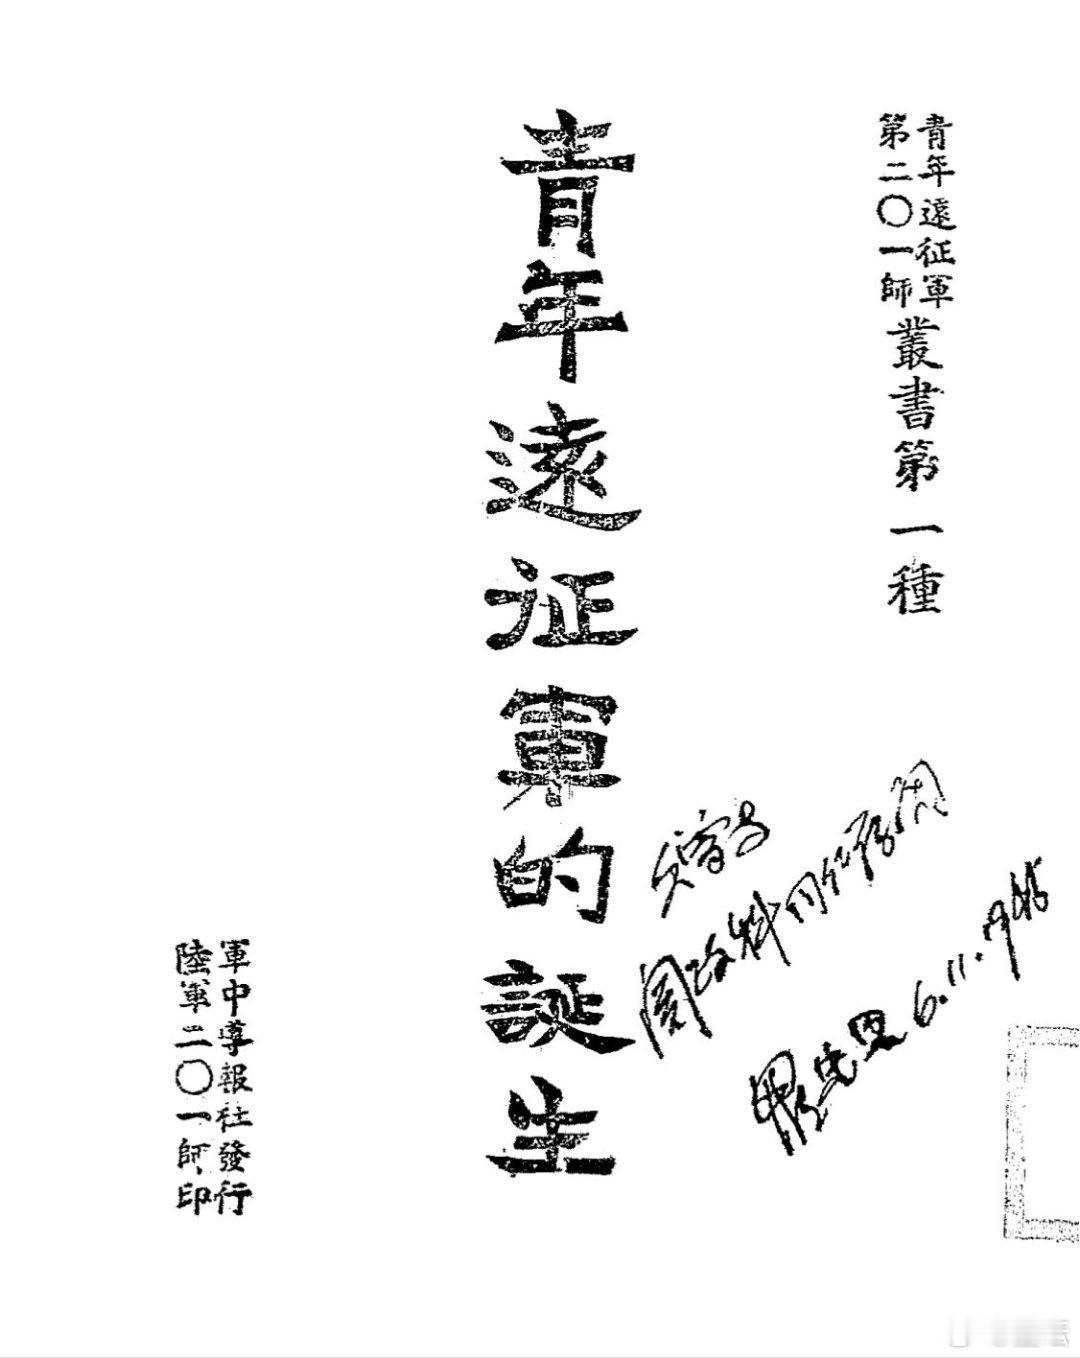 青年遠征軍
第二〇一師
叢書第一種
青年遠征軍的誕生
6.11.1945
軍中導報社發行
陸軍二〇一師印